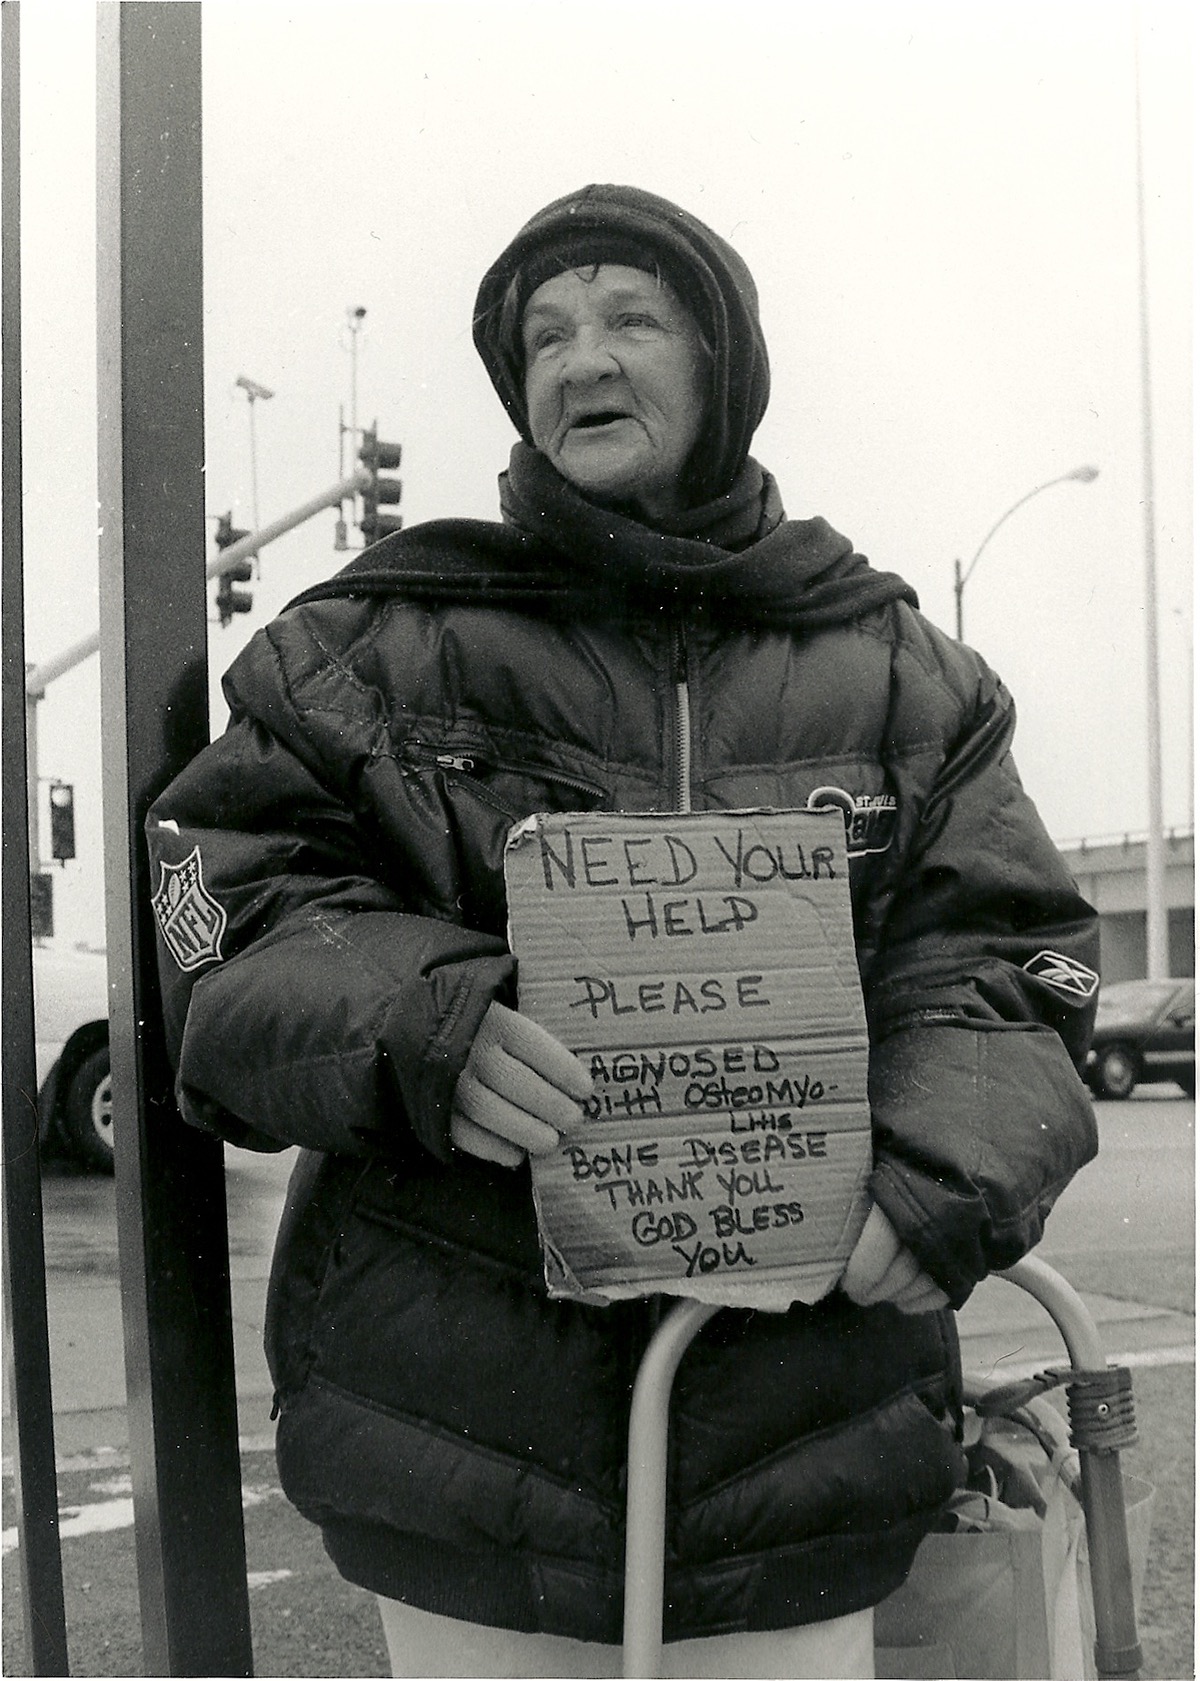 ST. LOUIS
Ram
NFL
NEED YOUR
HELP
PLEASE
AGNOSED
with OSteoMyo-
LItis
BONE DISEASE
THANK YOU
GOD BLESS
YOU